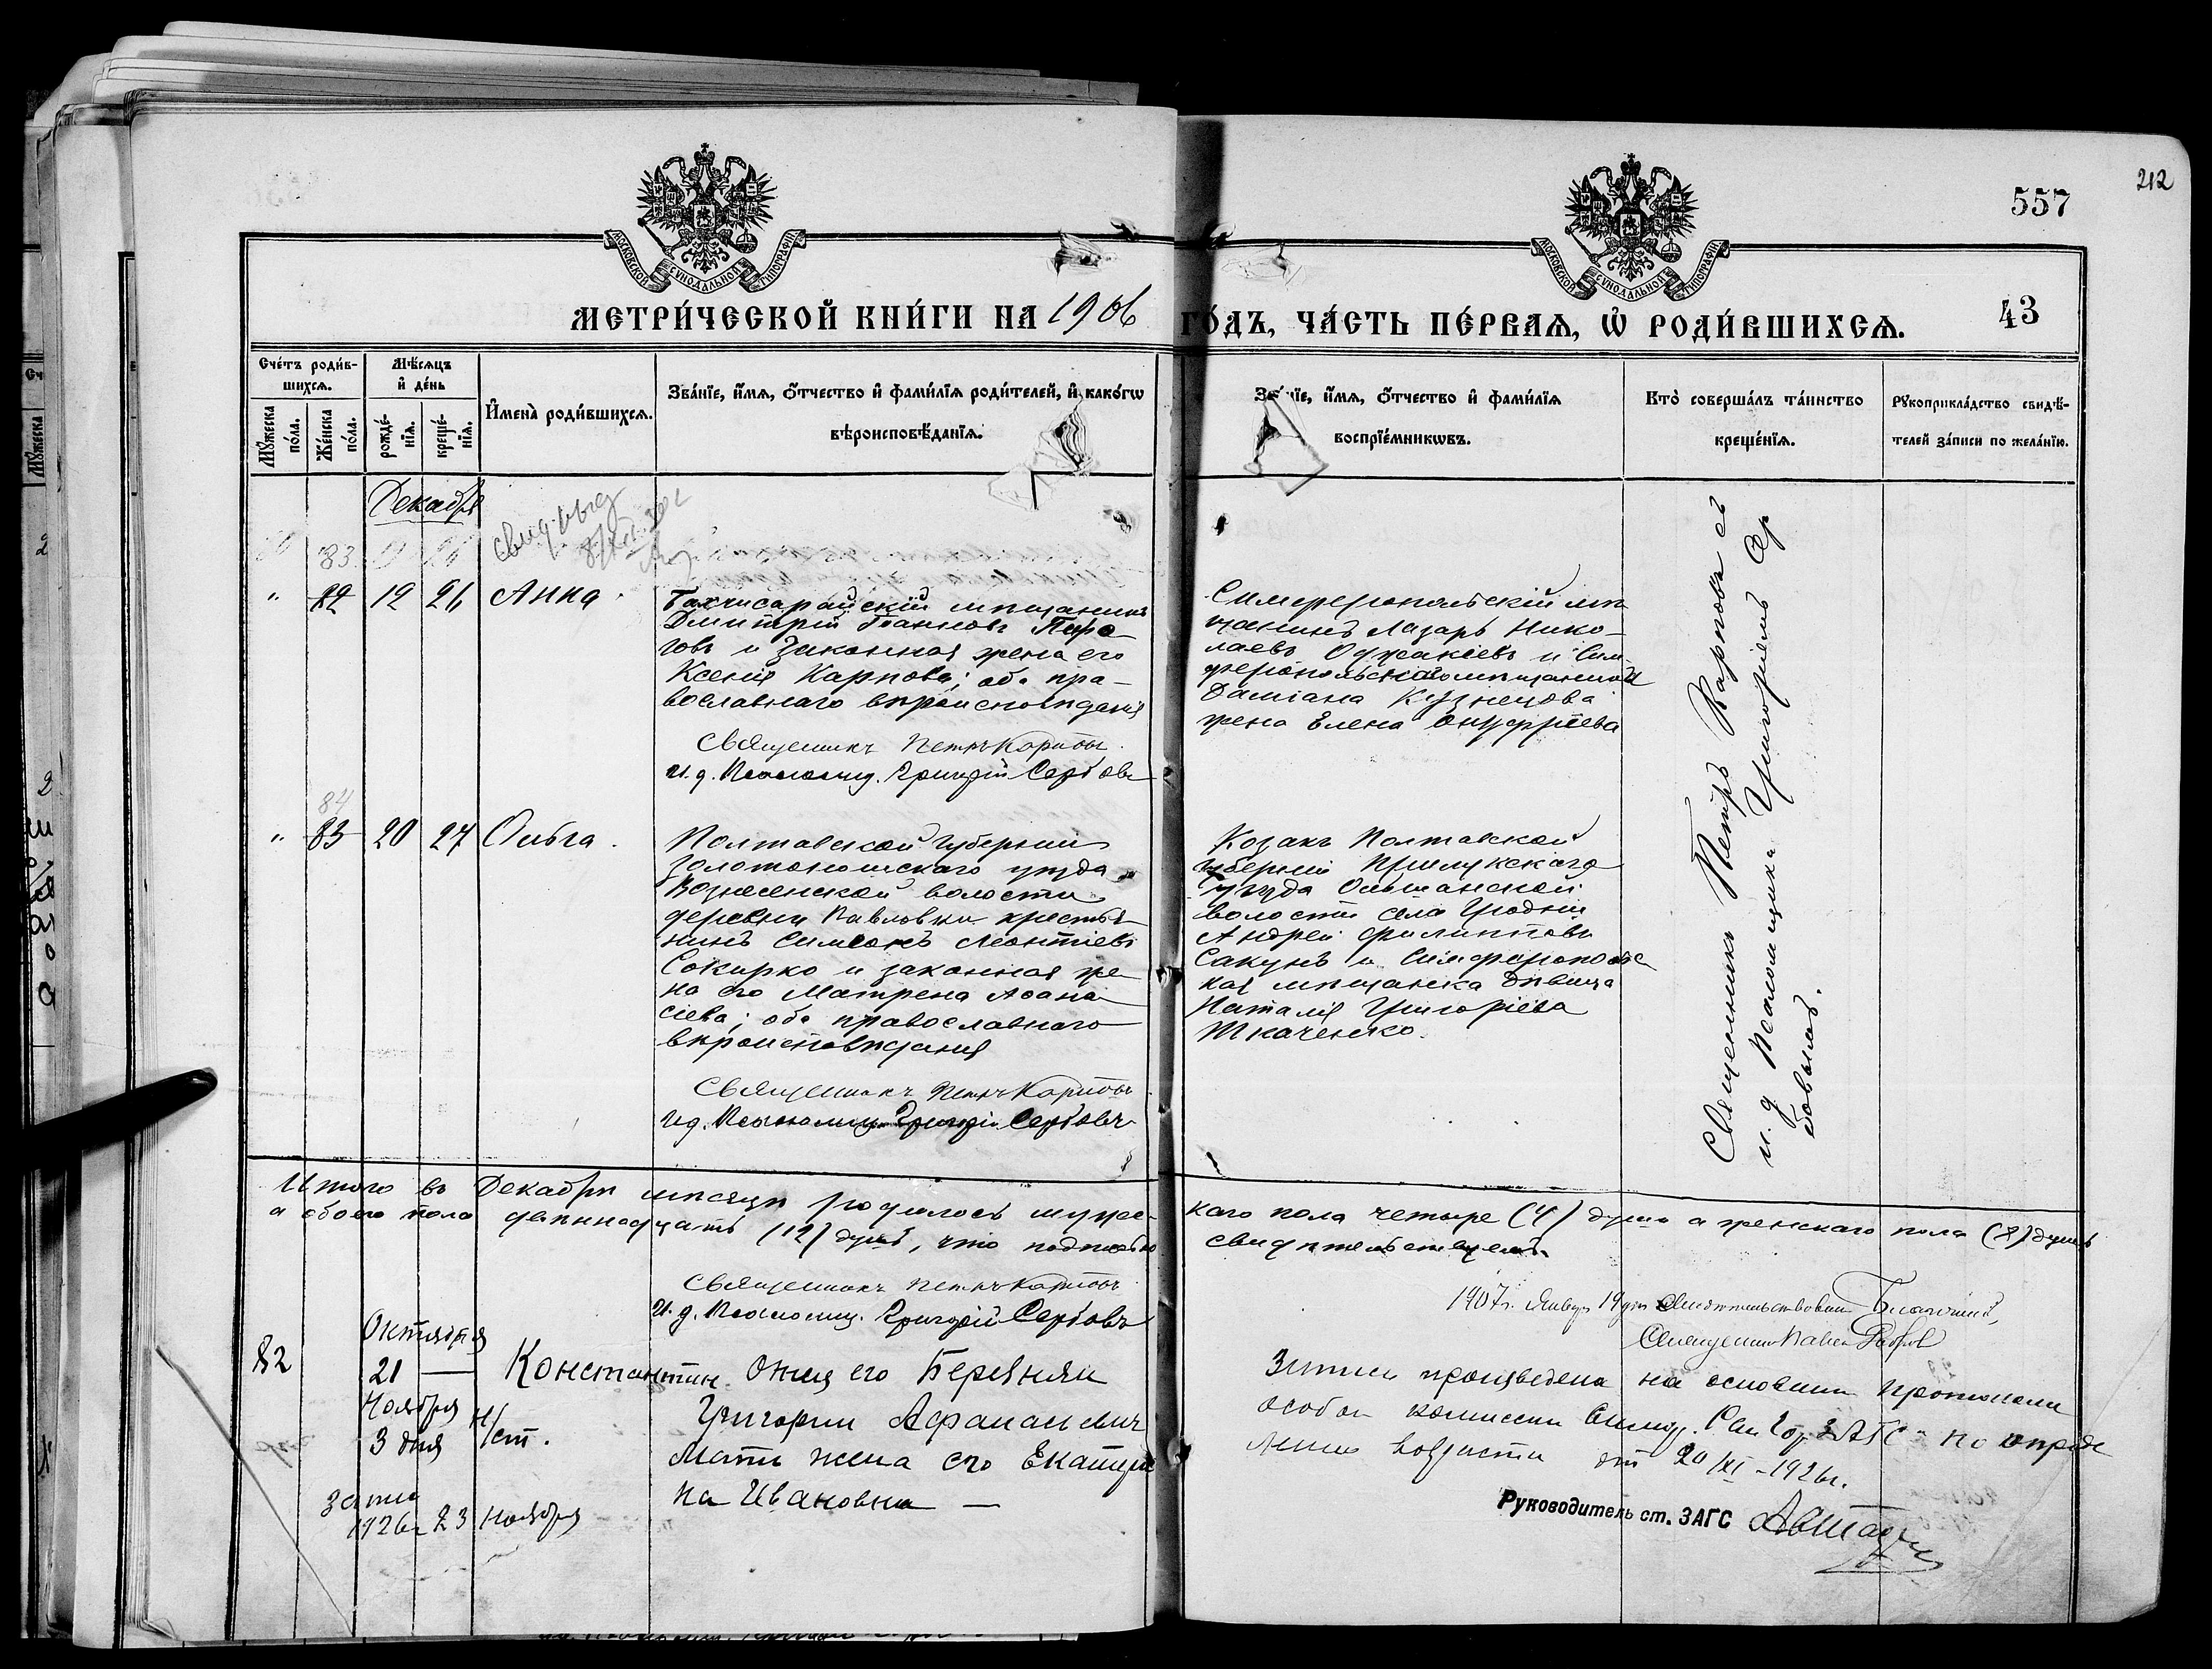 212
557
43
МОСКОВСКОЙ СѴНОДАЛЬНОЙ ТИПОГРАФІИ
МОСКОВСКОЙ СѴНОДАЛЬНОЙ ТИПОГРАФІИ
МЕТРИ́ЧЕСКОЙ КНИ́ГИ НА 1906 ГО́ДЪ, ЧА́СТЬ ПЕ́РВАЯ, Ѡ҆ РОДИ́ВШИХСЯ.
Сче́тъ роди́в-
шихся.
Мꙋ́жеска по́ла.
Же́нска по́ла.
Мѣ́сяцъ
и҆ де́нь
рожде́-нїя.
креще́-нїя.
И҆мена̀ роди́вшихся.
Зва́нїе, и҆́мя, ѻ҆́тчество и҆ фами́лїя роди́телей, и҆ како́гѡ
вѣроисповѣ́данїя.
Зва́нїе, и҆́мя, ѻ҆́тчество и҆ фами́лїя
воспрїе́мникѡвъ.
Кто̀ соверша́лъ та́инство
креще́нїя.
Рꙋкоприкла́дство свидѣ́-
телей за́писи по жела́нїю.
Декабря
83
" 82 12 26 Анна.
Бахчисарайскій мѣщанинъ
Дмитрій Іоанновъ Пиро-
говъ и законная жена его
Ксенія Карпова; оба пра-
вославнаго вѣроисповѣданія
Священникъ Петръ Карповъ.
И. д. Псаломщ. Григорій Сербовъ
Симферопольскій мѣ-
щанинъ Лазарь Нико-
лаевъ Оджакіевъ и Сим-
феропольскаго мѣщанина
Даміана Кузнецова
жена Елена Онуфріева
Священникъ Петръ Карповъ съ
и. д. Псаломщика Григоріемъ Сер
бовымъ.
84
" 83 20 27 Ольга.
Полтавской Губерніи
Золотоношскаго уѣзда
Вознесенской волости
деревни Павловки крестья-
нинъ Симеонъ Леонтіевъ
Сокирко и законная же-
на его Матрена Аѳана-
сіева; оба православнаго
вѣроисповѣданія
Священникъ Петръ Карповъ
И д. Псаломщ. Григорій Сербовъ
Козакъ Полтавской
губерніи Прилукскаго
уѣзда Ольшанской
волости села Гродни
Андрей Филипповъ
Сакунъ и Симферопольс
кая мѣщанка дѣвица
Наталія Григоріева
Ткаченко.
Итого въ Декабрѣ мѣсяцѣ родилось мужес-каго пола четыре (4) душъ а женскаго пола (8) душъ
а обоего пола двѣннадцать (12) душъ, что подписью свидѣтельствуемъ.
Священникъ Петръ Карповъ
И. д. Псаломщ. Григорій Сербовъ
1907 г. Январ 19 дня свидѣтельствовалъ Благочинный,
Священникъ Павелъ
82
Октября
21 —
Ноября
3 дня н/ст.
Запис
1926 г 23 Ноября
Константин
Отец его Березняк
Григорий Афанасиевич
Мать жена его Екатери
на Ивановна —
Запись произведена на основании протокола
особой комиссии Симф. Рай Гор ЗАГС по опреде
лению возраста от 20/XI - 1926 г.
Руководитель ст. ЗАГС